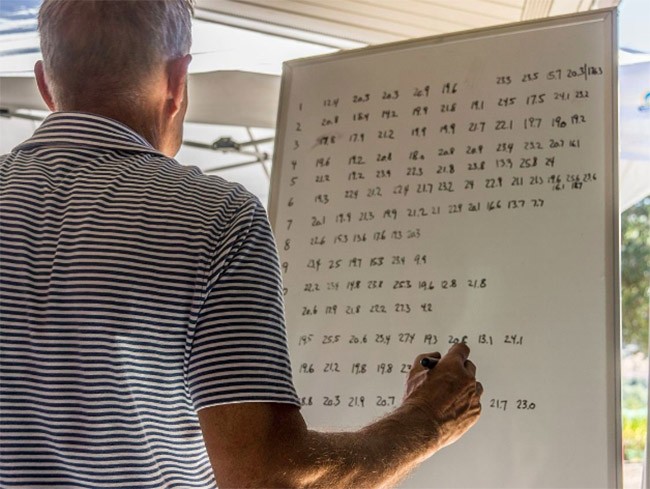 1 12.4 20.3 20.3 24.9 19.6 23.3 23.5 5.7 20.3
2 20.8 18.4 19.2 19.9 21.8 19.1 24.5 17.5 24.1 23.2
3 19.8 17.9 21.2 19.9 19.9 21.7 22.1 18.7 19.2
4 19.6 19.2 20.8 18.0 20.8 20.9 23.4 23.2 20.7 16.1
5 21.2 19.2 23.9 22.3 21.8 23.8 13.9 25.8 24
6 19.3 22.4 21.2 22.4 21.7 23.2 24 22.9 21.1 21.3 19.6 25.6 23.6
16.1 18.7
7 20.1 19.9 21.3 19.9 21.2 21 22.9 20.1 16.6 13.7 7.7
8 22.6 15.3 13.6 17.6 17.3 20.3
9 23.4 25 19.7 15.3 23.4 9.4
22.2 23.4 14.8 23.8 25.3 19.6 12.8 21.8
20.6 17.9 21.8 22.2 22.3 4.2
19.5 25.5 20.6 23.4 27.4 19.3 13.1 24.1
19.6 21.2 19.8 19.8
20.3 21.9 20.7 21.7 23.0